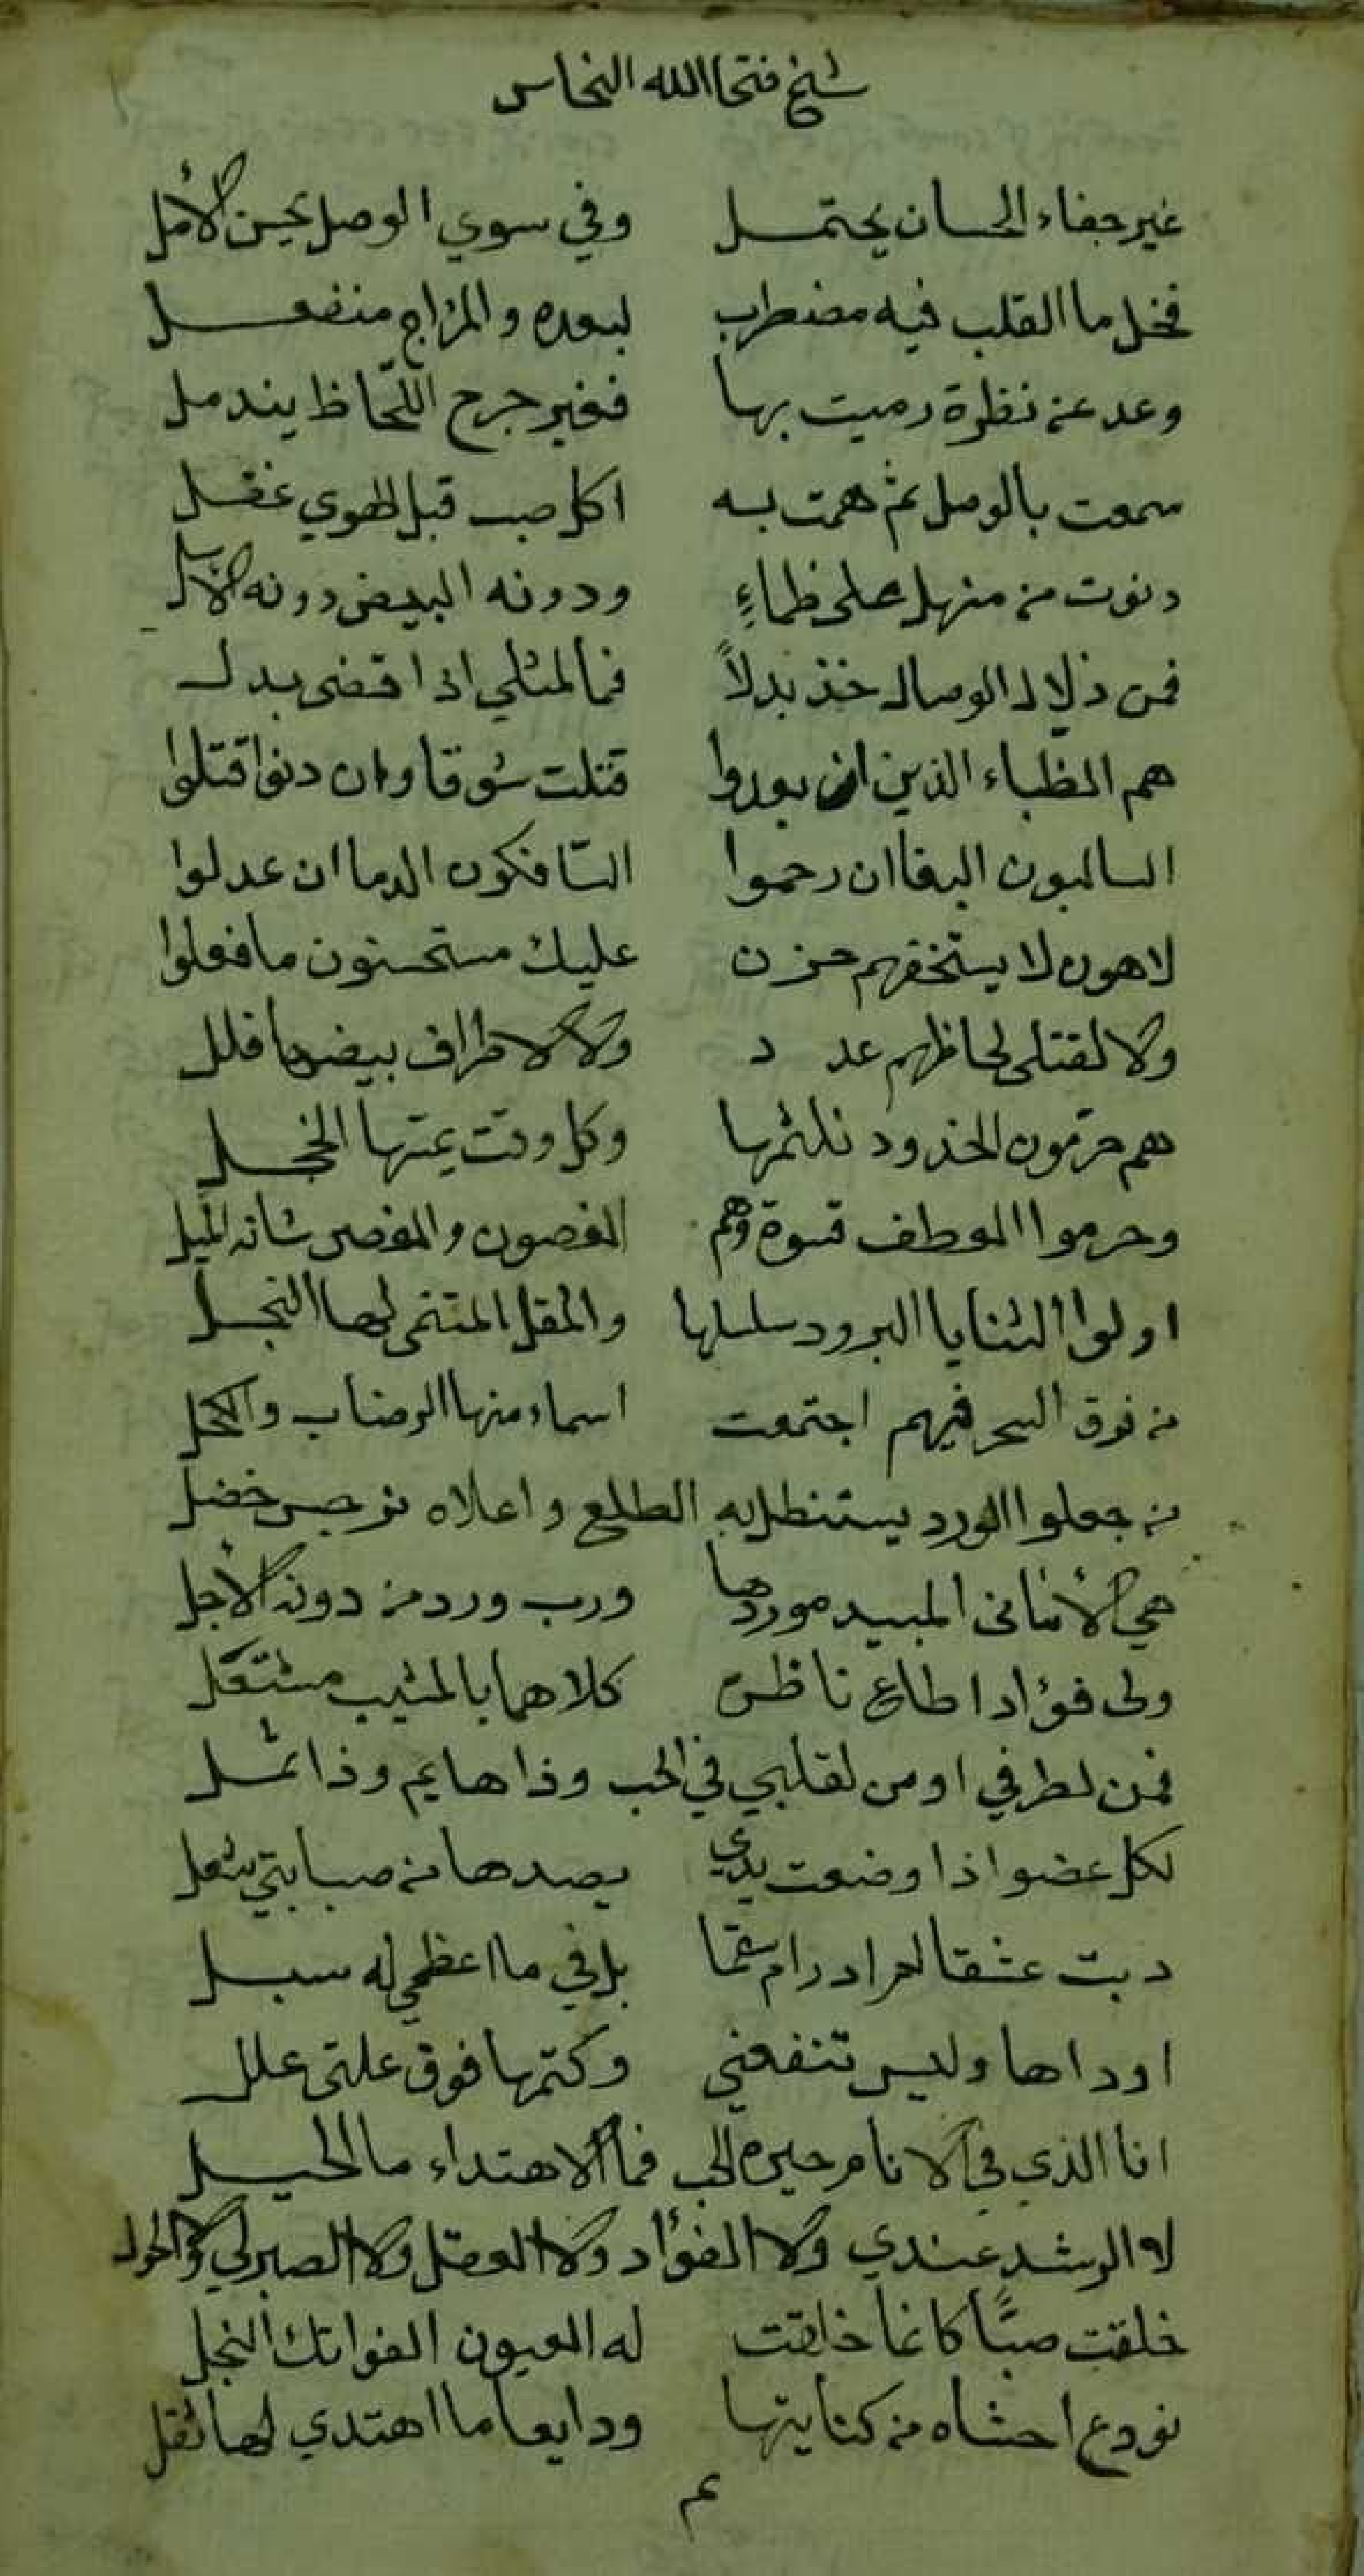 شيخ فتح الله النحاس
غير جفاء الحسان يحتمل وفي سوي الوصل يحسن الأمل
فخل ما القلب فيه مضطرب لبعده والمزاج منفعل
وعد عن نظرة رميت بها فغير جرح اللحاظ يندمل
سمعت بالوصل ثم همت به اكل صب قبل الهوي غفل
دنوت من منهل على ظماءٍ ودونه البيض دونه الاسل
فمن ذلال الوصال خذ بدلاً فما لمثلي اذا قضى بدل
هم الظباء الذين ان بعدوا قتلت شوقا وان دنوا قتلوا
السالبون البقا ان رحموا السّافكون الدما ان عدلوا
لاهون لا يستخفهم حزن عليك مستحسنون ما فعلوا
ولا لقتلى لحاظهم عدد ولا لاطراف بيضها فلل
هم حرّمون الخدود نلثمها وكل وقت يمتها الخجل
وحرموا العطف قسوة وهم الغصون والغصن شانه الميل
اولوا الثنايا البرود سلسلها والمقل المنتمى لها النجل
من فوق السحر فيهم اجتمعت اسماء منها الرضاب والكحل
من جعلوا الورد يستظل به الطلع واعلاه نرجس خضل
هي الأماني المبيد موردها ورب ورد من دونه الأجل
ولى فؤاد اطاع ناظره كلاهما بالمشيب مشتعل
فمن لطرفي او من لقلبي في الحب وذا هايم وذا ثمل
لكل عضو اذا وضعت يدي يصدها من صبابتي شعل
دبت عشقا لمراد رام سقما بل في ما اعظمي له سبل
اوداها وليس تنفعني وكتمها فوق علتى علل
انا الذي في الانام حيره الحب فما الاهتداء ما الحيل
لا الرشد عندي ولا الفؤاد ولا العقل ولا الصبر لي ولا الحول
خلقت صبًّا كانما خلقت له العيون الفواتك النجل
نودع احشاه من كنايتها ودايعا ما اهتدي لها ثقل
م